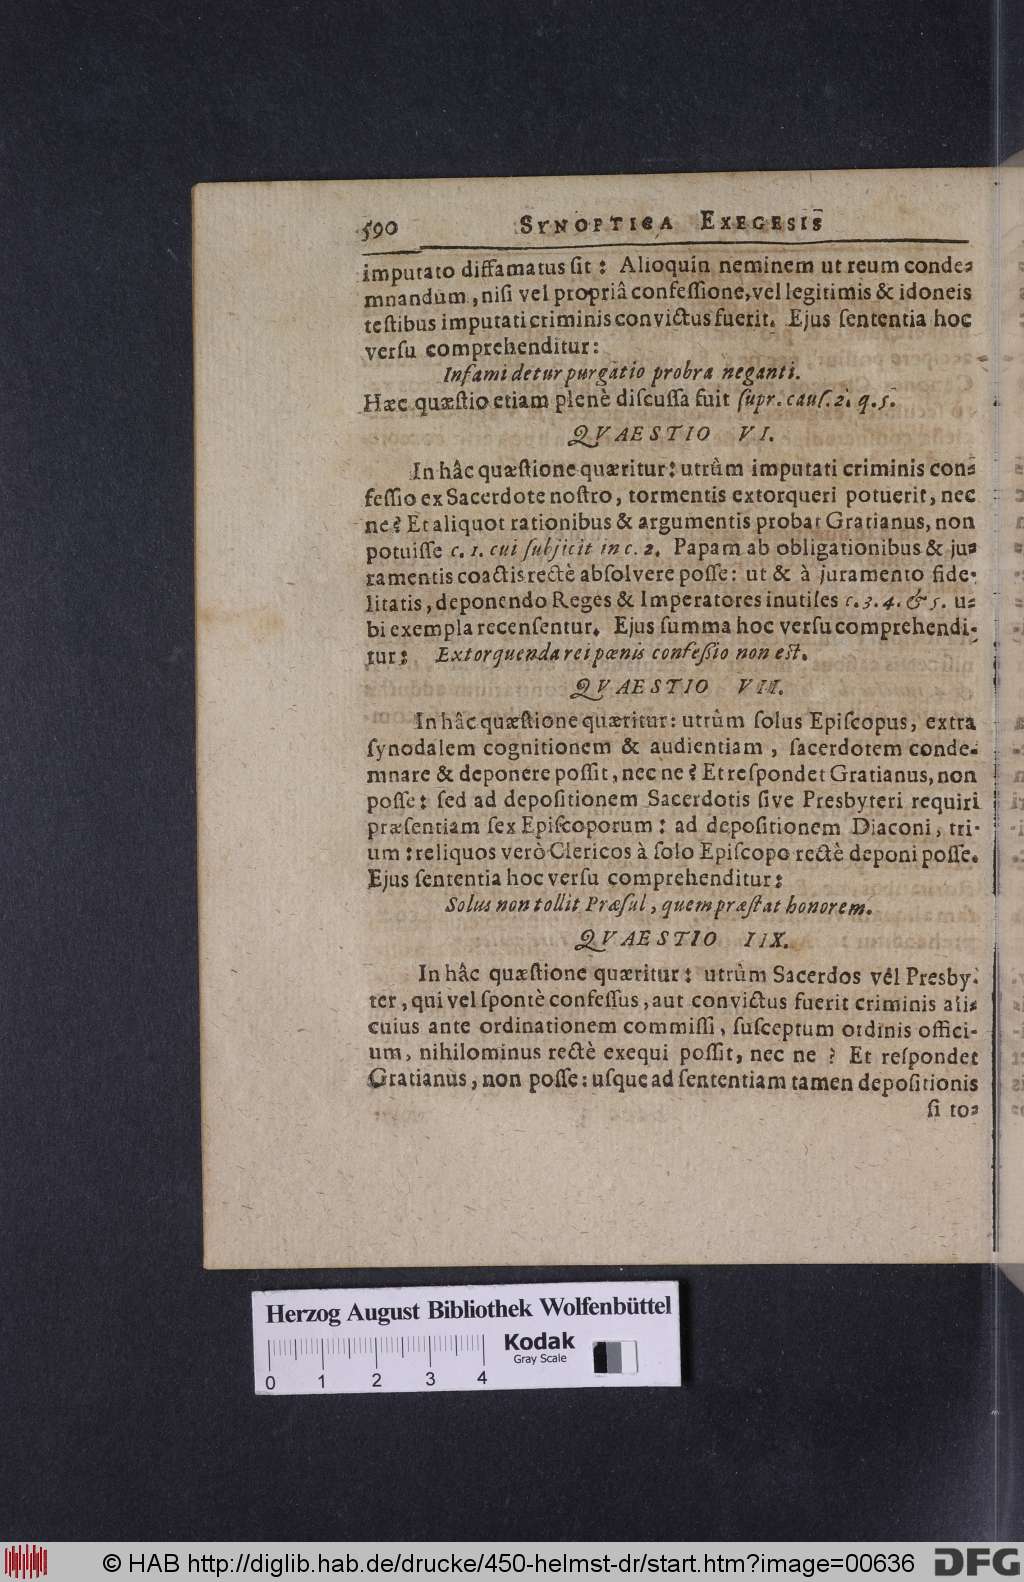 590 SYNOPTICA EXEGESIS
imputato diffamatus ſit: Alioquin neminem ut reum conde-
mnandum, niſi vel propriâ confeſſione, vel legitimis & idoneis
teſtibus imputati criminis convictus fuerit. Ejus ſententia hoc
verſu comprehenditur:
Infami detur purgatio probra neganti.
Hæc quæſtio etiam plenè diſcuſſa fuit ſupr. cauſ. 2. q. 5.
QVAESTIO VI.
In hâc quæſtione quæritur: utrùm imputati criminis con-
feſſio ex Sacerdote noſtro, tormentis extorqueri potuerit, nec
ne? Et aliquot rationibus & argumentis probat Gratianus, non
potuiſſe c. 1. cui ſubjicit in c. 2. Papam ab obligationibus & ju-
ramentis coactis rectè abſolvere poſſe: ut & à juramento fide-
litatis, deponendo Reges & Imperatores inutiles c. 3. 4. & 5. u-
bi exempla recenſentur. Ejus ſumma hoc verſu comprehendi-
tur: Extorquenda rei pœnis confeſſio non eſt.
QVAESTIO VII.
In hâc quæſtione quæritur: utrùm ſolus Epiſcopus, extra
ſynodalem cognitionem & audientiam, ſacerdotem conde-
mnare & deponere poſſit, nec ne? Et reſpondet Gratianus, non
poſſe: ſed ad depoſitionem Sacerdotis ſive Presbyteri requiri
præſentiam ſex Epiſcoporum: ad depoſitionem Diaconi, tri-
um: reliquos verò Clericos à ſolo Epiſcopo rectè deponi poſſe.
Ejus ſententia hoc verſu comprehenditur:
Solus non tollit Præſul, quem præſtat honorem.
QVAESTIO IIX.
In hâc quæſtione quæritur: utrùm Sacerdos vel Presby-
ter, qui vel ſpontè confeſſus, aut convictus fuerit criminis ali-
cuius ante ordinationem commiſſi, ſuſceptum ordinis offici-
um, nihilominus rectè exequi poſſit, nec ne? Et reſpondet
Gratianus, non poſſe: uſque ad ſententiam tamen depoſitionis
ſi to-
Herzog August Bibliothek Wolfenbüttel
Kodak
Gray Scale
0 1 2 3 4
© HAB http://diglib.hab.de/drucke/450-helmst-dr/start.htm?image=00636 DFG